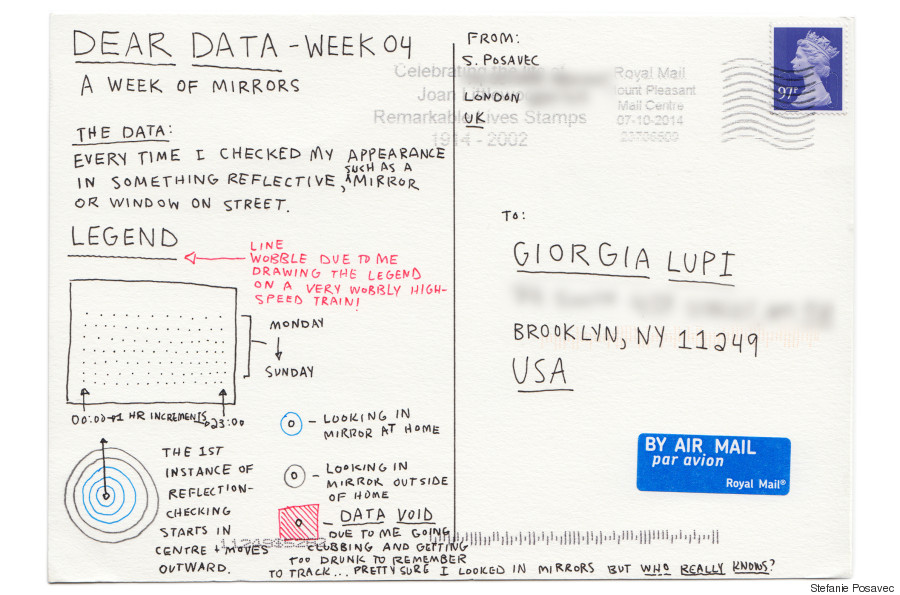 DEAR DATA - WEEK 04
A WEEK OF MIRRORS
THE DATA:
EVERY TIME I CHECKED MY APPEARANCE
IN SOMETHING REFLECTIVE, SUCH AS A MIRROR
OR WINDOW ON STREET.
LEGEND
LINE
WOBBLE DUE TO ME
DRAWING THE LEGEND
ON A VERY WOBBLY HIGH-
SPEED TRAIN!
MONDAY
SUNDAY
00:00 → 1 HR INCREMENTS → 23:00
THE 1ST
INSTANCE OF
REFLECTION-
CHECKING
STARTS IN
CENTRE + MOVES
OUTWARD.
- LOOKING IN
MIRROR AT HOME
- LOOKING IN
MIRROR OUTSIDE
OF HOME
- DATA VOID
DUE TO ME GOING
CLUBBING AND GETTING
TOO DRUNK TO REMEMBER
TO TRACK... PRETTY SURE I LOOKED IN MIRRORS BUT WHO REALLY KNOWS?
FROM:
S. POSAVEC
LONDON
UK
Celebrating the
Joan
Remarkable Lives Stamps
1914 - 2002
Royal Mail
Mount Pleasant
Mail Centre
07-10-2014
97
TO:
GIORGIA LUPI
BROOKLYN, NY 11249
USA
BY AIR MAIL
par avion
Royal Mail®
Stefanie Posavec